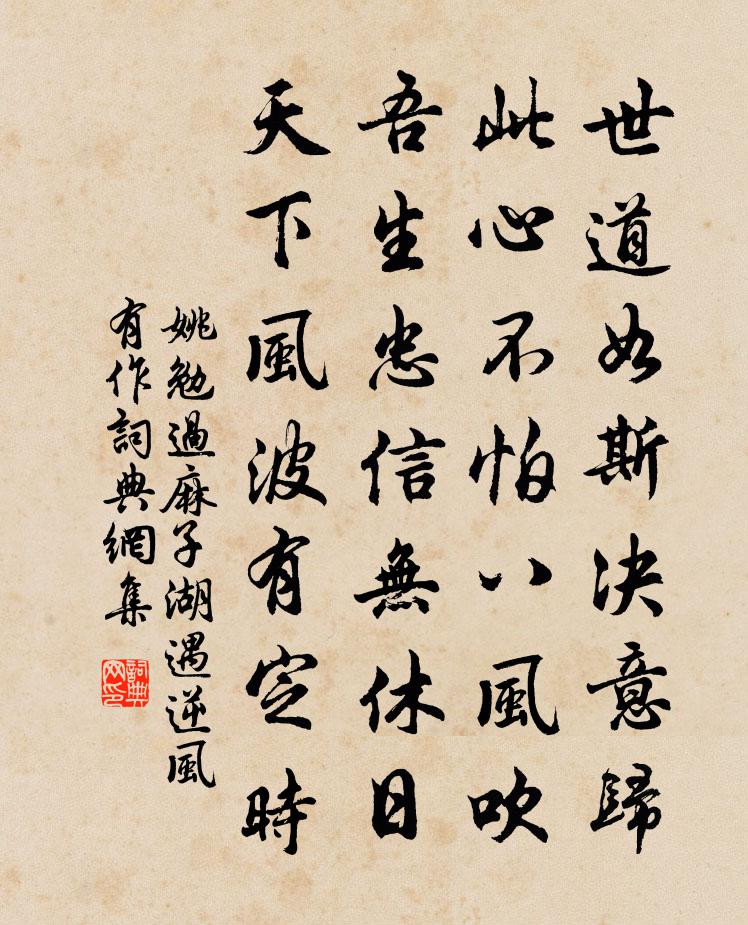 世道如斯决意歸
此心不怕八風吹
吾生忠信無休日
天下風波有定時
姚勉過麻子湖遇逆風
有作詞典網集
詞典網印